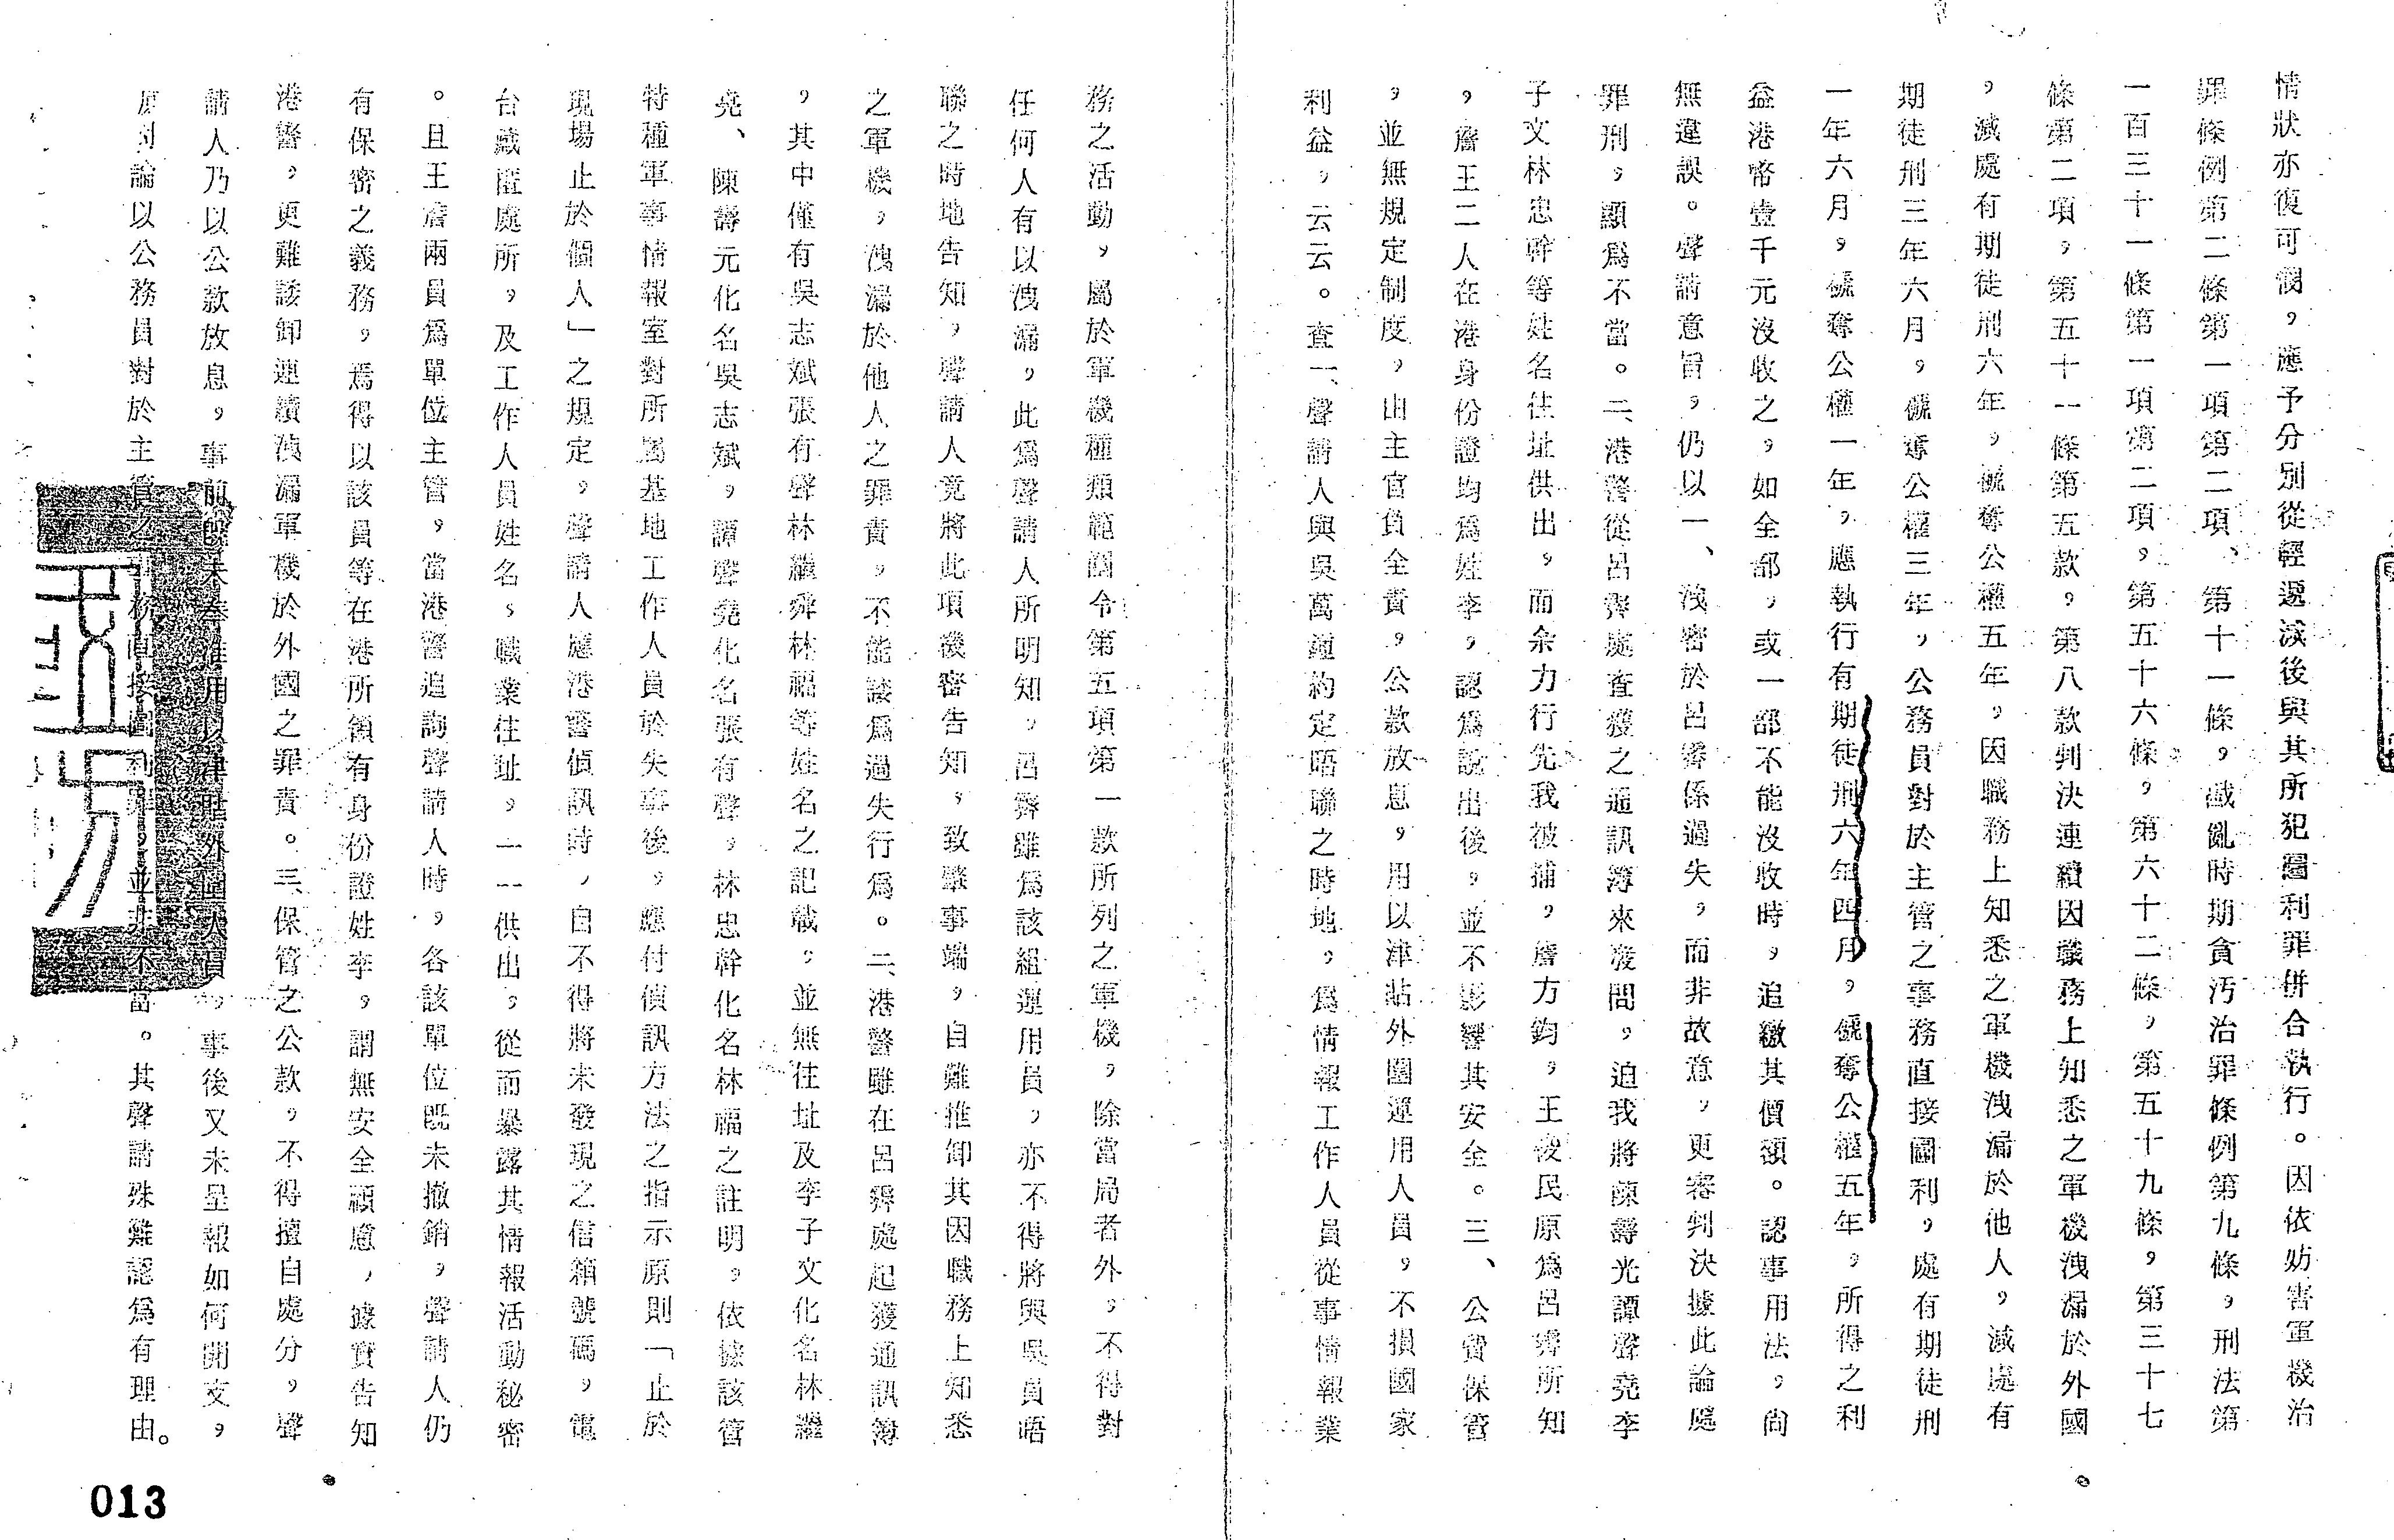 情狀亦復可憫，應予分別從輕遞減後與其所犯圖利罪併合執行。因依妨害軍機治
罪條例第二條第一項第二項、第十一條，戡亂時期貪污治罪條例第九條，刑法第
一百三十一條第一項第二項，第五十六條，第六十二條，第五十九條，第三十七
條第二項，第五十一條第五款，第八款判決連續因職務上知悉之軍機洩漏於外國
，減處有期徒刑六年，褫奪公權五年，因職務上知悉之軍機洩漏於他人，減處有
期徒刑三年六月，褫奪公權三年，公務員對於主管之事務直接圖利，處有期徒刑
一年六月，褫奪公權一年，應執行有期徒刑六年四月，褫奪公權五年，所得之利
益港幣壹千元沒收之，如全部，或一部不能沒收時，追繳其價額。認事用法，尚
無違誤。聲請意旨，仍以一、洩密於呂霽係過失，而非故意，更審判決據此論處
罪刑，顯為不當。二、港警從呂霽處查獲之通訊簿來凌問，迫我將陳壽光譚聲堯李
子文林忠幹等姓名住址供出，而余力行先我被捕，詹方鈞，王俊民原為呂霽所知
，詹王二人在港身份證均為姓李，認為說出後，並不影響其安全。三、公費保管
，並無規定制度，由主官負全責，公款放息，用以津貼外圍運用人員，不損國家
利益，云云。查一、聲請人與吳萬鍾約定晤聯之時地，為情報工作人員從事情報業
務之活動，屬於軍機種類範圍令第五項第一款所列之軍機，除當局者外，不得對
任何人有以洩漏，此為聲請人所明知，呂霽雖為該組運用員，亦不得將與吳員晤
聯之時地告知，聲請人竟將此項機密告知，致肇事端，自難推卸其因職務上知悉
之軍機，洩漏於他人之罪責，不能諉為過失行為。二、港警雖在呂霽處起獲通訊簿
，其中僅有吳志斌張有聲林繼舜林福等姓名之記載，並無住址及李子文化名林繼
堯、陳壽元化名吳志斌，譚聲堯化名張有聲，林忠幹化名林福之註明，依據該管
特種軍事情報室對所屬基地工作人員於失事後，應付偵訊方法之指示原則「止於
現場止於個人」之規定，聲請人應港警偵訊時，自不得將未發現之信箱號碼，電
台藏匿處所，及工作人員姓名，職業住址，一一供出，從而暴露其情報活動秘密
。且王詹兩員為單位主管，當港警追詢聲請人時，各該單位既未撤銷，聲請人仍
有保密之義務，焉得以該員等在港所領有身份證姓李，謂無安全顧慮，據實告知
港警，更難諉卸連續洩漏軍機於外國之罪責。三、保管之公款，不得擅自處分，聲
請人乃以公款放息，事前既未奉准用以津貼外圍人員，事後又未呈報如何開支，
原判論以公務員對於主管之事務直接圖利罪，並非不當。其聲請殊難認為有理由。
013